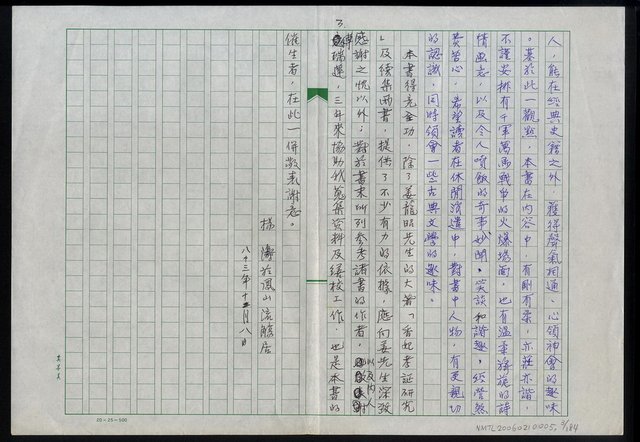 人，能在經典史館之外，獲得聲氣相通、心領神會的趣味
。基於此一觀點，本書在內容中，有剛有柔，亦莊亦諧，
不謹安排有千軍萬馬戰爭的火爆場面，也有溫柔旖旎的詩
情畫意，以及令人噴飯的奇事妙聞，笑談和諧趣。經營煞
費苦心，希望讀者在休閒消遣中，對書中人物，有更親切
的認識，同時領會一些古典文學的趣味。
本書得克全功，除了姜龍昭先生的大著「香妃考證研究
」及續集兩書，提供了不少有力的依據，應向姜先生深致
感謝之忱以外；對於書末所列參考諸書的作者，以及內人
傅瑞蓮，三年來協助我蒐集資料及繕校工作，也是本書的
催生者，在此一併敬表謝忘。
楊濤於鳳山流觴居
八十三年十一月八日
20×25=500
NMTL20060210005 3/184